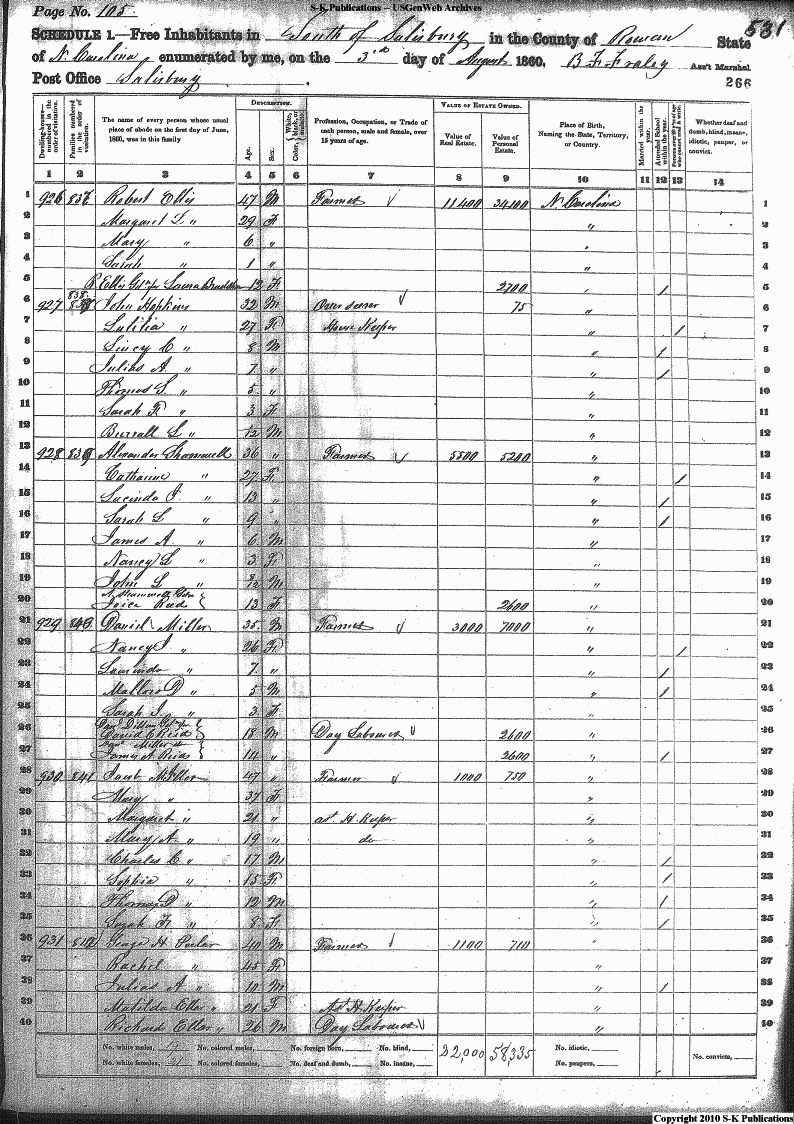 S-K Publications – USGenWeb Archives
Page No. 105 531
SCHEDULE 1.—Free Inhabitants in South of Salisbury in the County of Rowan State
of N Carolina enumerated by me, on the 3rd day of August 1860. B F Fraley Ass't Marshal
Post Office Salisbury. 266
Dwelling-houses—numbered in the order of visitation. Families numbered in the order of visitation. The name of every person whose usual place of abode on the first day of June, 1860, was in this family DESCRIPTION. Age. Sex. Color, White, black, or mulatto. Profession, Occupation, or Trade of each person, male and female, over 15 years of age. VALUE OF ESTATE OWNED. Value of Real Estate. Value of Personal Estate. Place of Birth, Naming the State, Territory, or Country. Married within the year. Attended School within the year. Persons over 20 y'rs of age who cannot read & write. Whether deaf and dumb, blind, insane, idiotic, pauper, or convict.
1 2 3 4 5 6 7 8 9 10 11 12 13 14
1 926 837 Robert Ellis 47 M Farmer 11400 34100 N. Carolina 1
2 Margaret L " 29 F " 2
3 Mary " 6 " " 3
4 Sarah " 1 " " 4
5 R. Ellis Laura 12 F 2700 " / 5
6 927 838 John Hopkins 32 M Overseer 75 " 6
7 " 27 F House Keeper " / 7
8 C " 8 M " / 8
9 Julius A " 7 " " / 9
10 Thomas S. " 5 " " 10
11 Sarah F " 3 F " 11
12 L " /12 M " 12
13 928 839 Alexander 36 " Farmer 5500 5200 " 13
14 Catharine " 27 F " / 14
15 Lucinda J " 13 " " / 15
16 Sarah L " 9 " " / 16
17 James A. " 6 M " 17
18 Nancy L " 3 F " 18
19 John L " /12 M " 19
20 13 F 2600 " 20
21 929 840 Daniel Miller 35 M Farmer 3000 7000 " 21
22 Nancy J " 26 F " / 22
23 " 7 " " / 23
24 D " 5 M " / 24
25 Sarah J " 3 F " 25
26 David C Reid 18 M Day Labourer 2600 " 26
27 James A. Reid 14 " 2600 " / 27
28 930 841 Jacob Miller 47 " Farmer 1000 750 " 28
29 Mary " 37 F " 29
30 Margaret " 21 " as H. Keeper " 30
31 Mary A. " 19 " do " 31
32 Charles C " 17 M " / 32
33 Sophia " 15 F " / 33
34 Thomas D " 12 M " / 34
35 Sarah F " 8 F " / 35
36 931 842 H 40 M Farmer 1100 710 " 36
37 Rachel " 45 F " 37
38 Julius A " 10 M " / 38
39 Matilda Eller " 21 F As H. Keeper " 39
40 Richard Eller " 26 M Day Labourer " 40
No. white males, 19 No. colored males, No. foreign born, No. blind, 22,000 58,335 No. idiotic,
No. white females, 21 No. colored females, No. deaf and dumb, No. insane, No. paupers, No. convicts,
Copyright 2010 S-K Publications